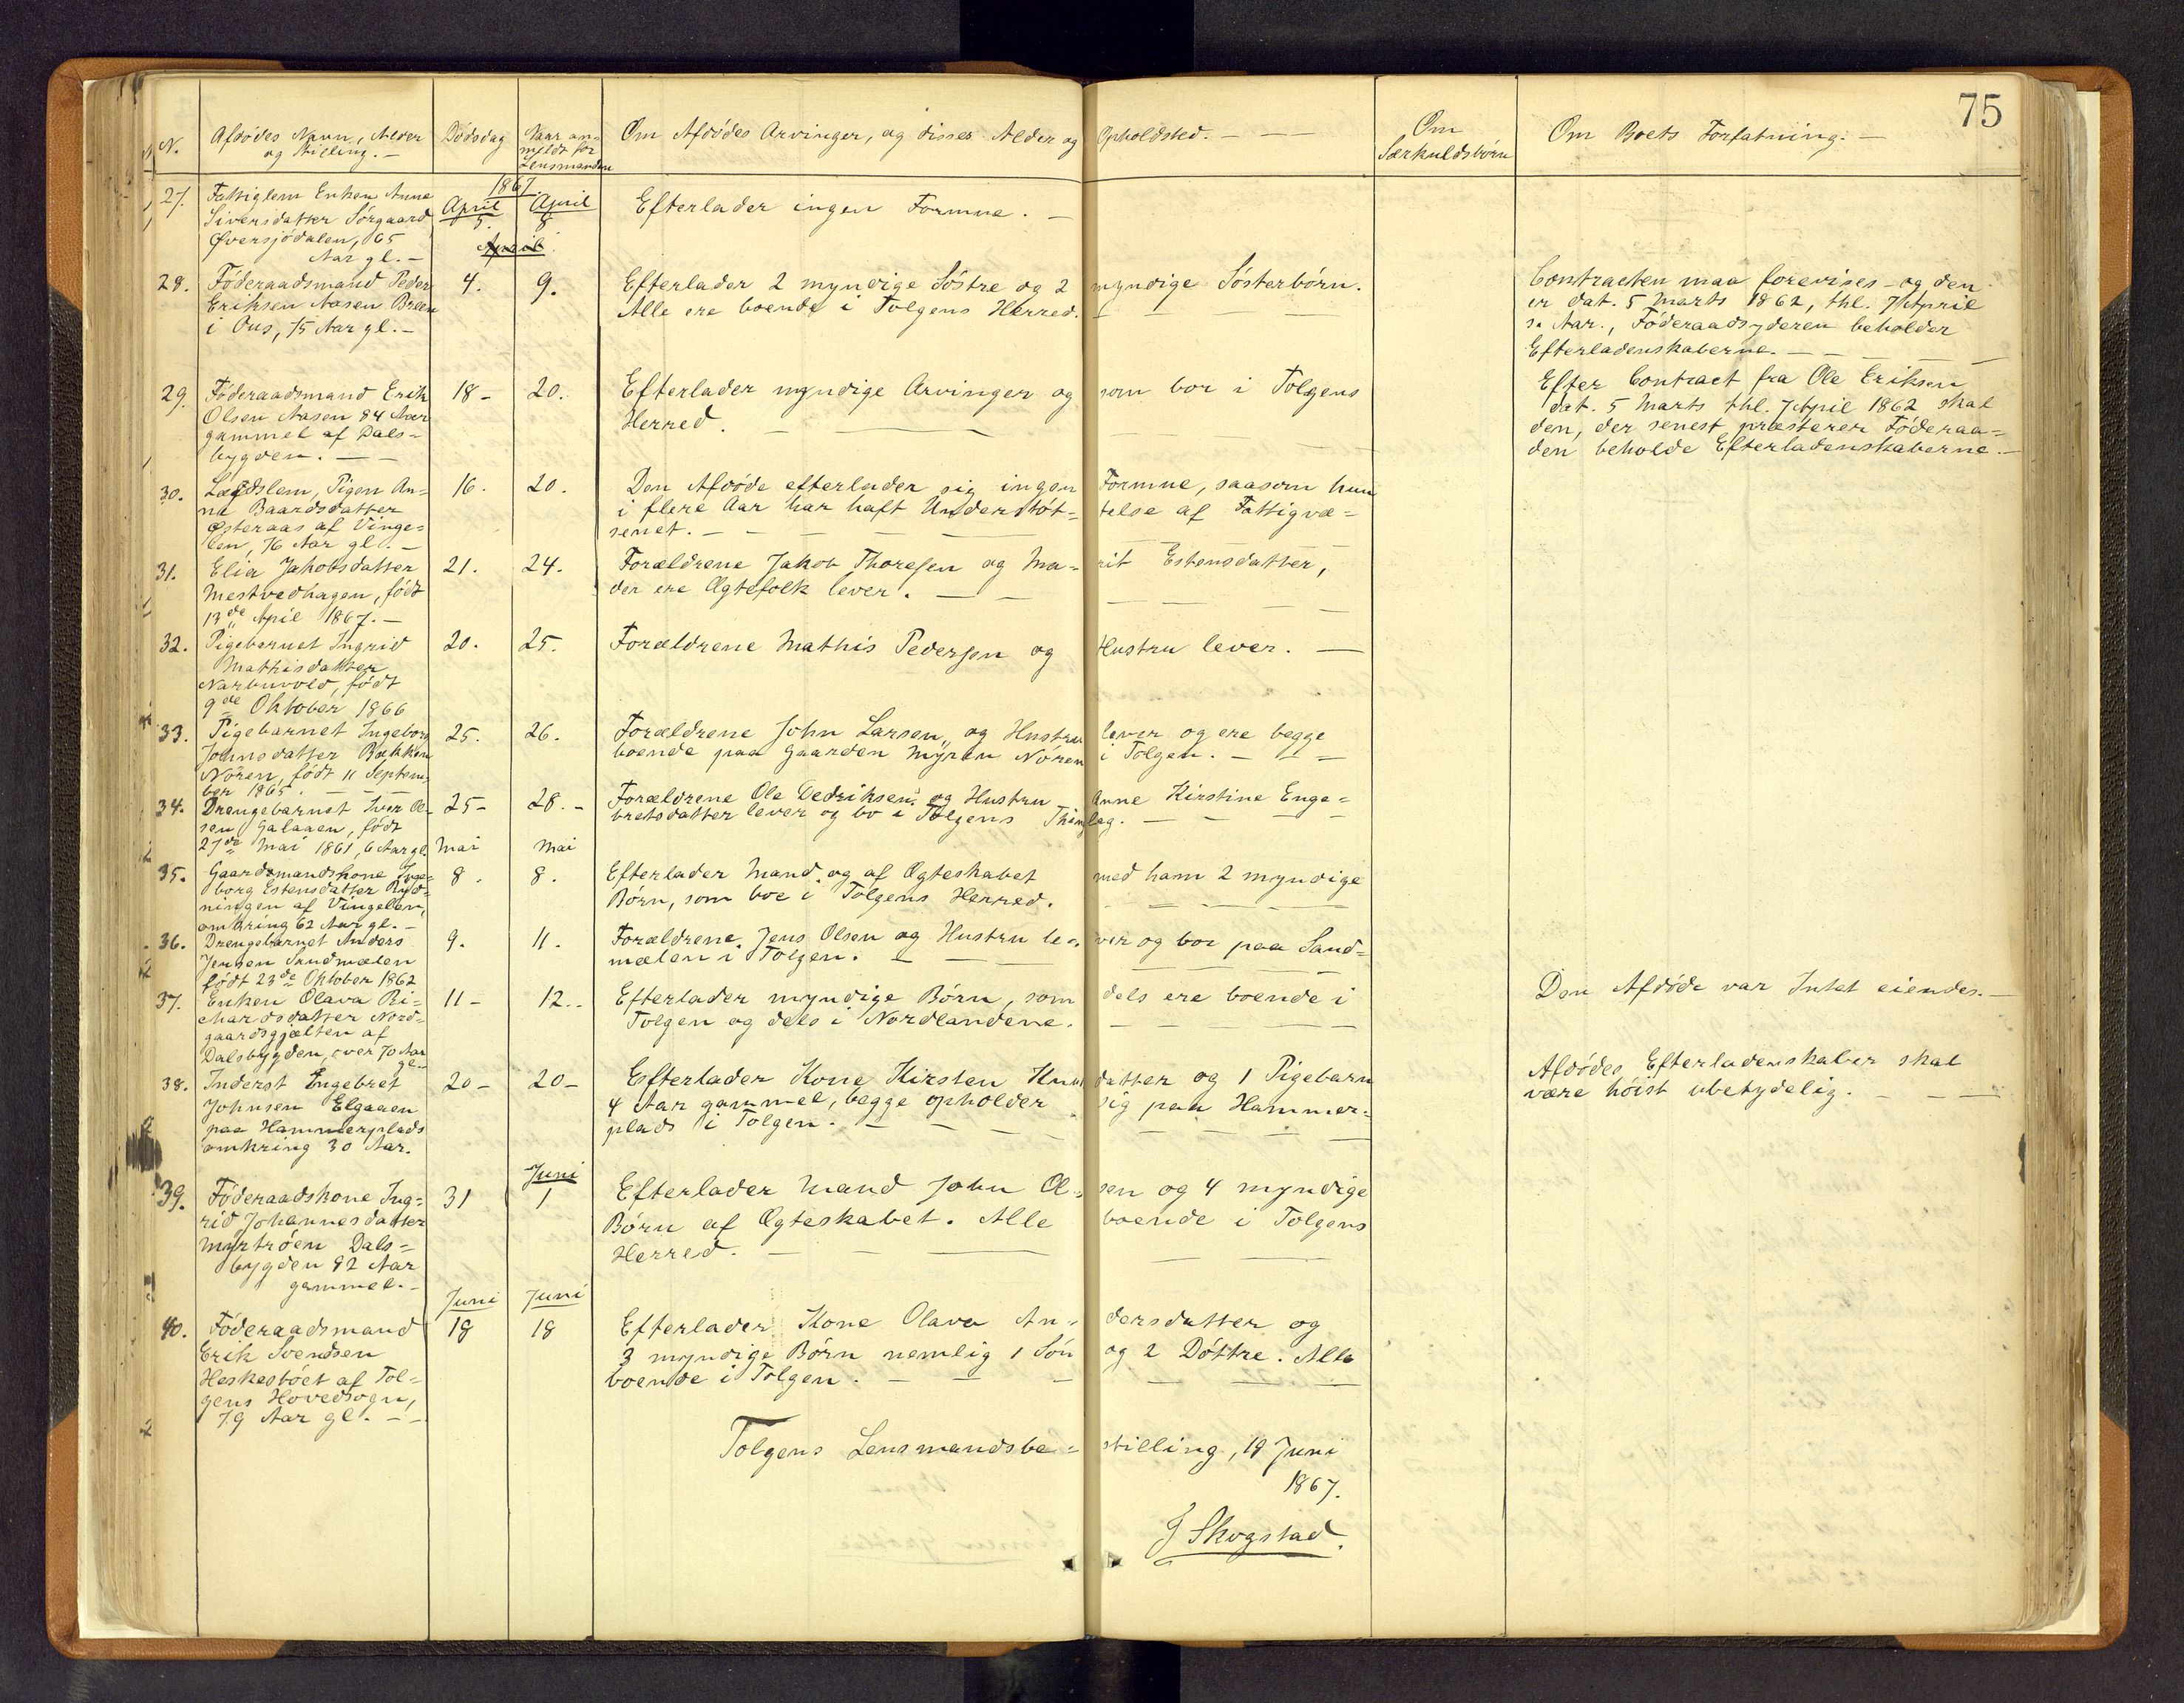 75
N. Afdödes Navn, Alder og Stilling. — Dödsdag Naar anmeldt for Lensmanden Om Afdödes Arvinger, og disses Alder og Opholdsted. — Om Særkuldsbörn Om Boets Forfatning. —
1867.
April April
27. Fattiglem Enken Anne 5. 8 Efterlader ingen Formue. —
Siversdatter Sörgaard
Översjödalen, 65
Aar gl. —
28. Föderaadsmand Peder 4. 9. Efterlader 2 myndige Söstre og 2 myndige Sösterbörn. Contracten maa forevises og den
Eriksen Aasen Breen Alle ere boende i Tolgens Herred. er dat. 5 Marts 1862, thl. 7 April
i Ous, 75 Aar gl. — s. Aar., Föderaadsyderen beholder
Efterladenskaberne. —
29. Föderaadsmand Erik 18 - 20. Efterlader myndige Arvinger og som bor i Tolgens Efter Contract fra Ole Eriksen
Olsen Aasen 84 Aar Herred. — dat. 5 Marts thl. 7 April 1862 skal
gammel af Dals= den, der senest præsterer Föderaa=
bygden. — den beholde Efterladenskaberne. —
30. Lægdslem, Pigen An= 16. 20. Den Afdöde efterlader sig ingen Formue, saasom hun
na Baardsdatter i flere Aar har haft Understöt= telse af Fattigvæ=
Österaas af Vinge= senet. —
len, 76 Aar gl. —
31. Elia Jakobsdatter 21. 24. Forældrene Jakob Thoresen og Ma= rit Estensdatter,
Mestvedhagen, födt der ere Ægtefolk lever. —
13de April 1867. —
32. Pigebarnet Ingrid 20. 25. Forældrene Mathis Pedersen og Hustru lever. —
Mathisdatter
Narbuvold, födt
9de Oktober 1866
33. Pigebarnet Ingebor 25. 26. Forældrene John Larsen, og Hustru lever og ere begge
Johnsdatter Bakken boende paa Gaarden Myren Nören i Tolgen. —
Nören, födt 11 Septem=
ber 1865. —
34. Drengebarnet Iver Ol= 25 - 28. - Forældrene Ole Dedriksen og Hustru Anne Kirstine Enge=
sen Galaaen, födt bretsdatter lever og bo i Tolgens Thinglag. —
27de Mai 1861, 6 Aar gl. Mai Mai
35. Gaardsmandskone Inge= 8. 8. Efterlader Mand og af Ægteskabet med ham 2 myndige
borg Estensdatter Ryd= Börn, som boe i Tolgens Herred.
ningen af Vingelen,
omkring 62 Aar gl. —
36. Drengebarnet Anders 9. 11. Forældrene Jens Olsen og Hustru le= ver og bor paa Sand=
Jensen Sandmælen mælen i Tolgen. —
födt 23de Oktober 1862
37. Enken Olava Ri= 11 - 12. - Efterlader myndige Börn, som dels ere boende i Den Afdöde var Intet eiendes. —
chardsdatter Nord= Tolgen og dels i Nordlandene. —
gaardsgjelten af
Dalsbygden, over 70 Aar
gl.
38. Inderst Engebret 20 - 20 - Efterlader Kone Kirsten Knudsdatter og 1 Pigebarn Afdödes Efterladenskaber skal
Johnsen Elgaaen 4 Aar gammel, begge opholder sig paa Hammer= være höist ubetydelig. —
paa Hammerplads plads i Tolgen. —
omkring 30 Aar.
Juni
39. Föderaadskone Ing= 31 1 Efterlader Mand John Ol= sen og 4 myndige
rid Johannesdatter Börn af Ægteskabet. Alle boende i Tolgens
Myrtröen Dals= Herred. —
bygden 82 Aar
gammel. —
Juni Juni
40. Föderaadsmand 18 18 Efterlader Kone Olava An= dersdatter og
Erik Svendsen 3 myndige Börn nemlig 1 Sön og 2 Döttre. Alle
Heskestöet af Tol= boende i Tolgen. —
gens Hovedsogn,
79 Aar gl. —
Tolgens Lensmandsbe= stilling, 19 Juni
1867.
J Skogstad.